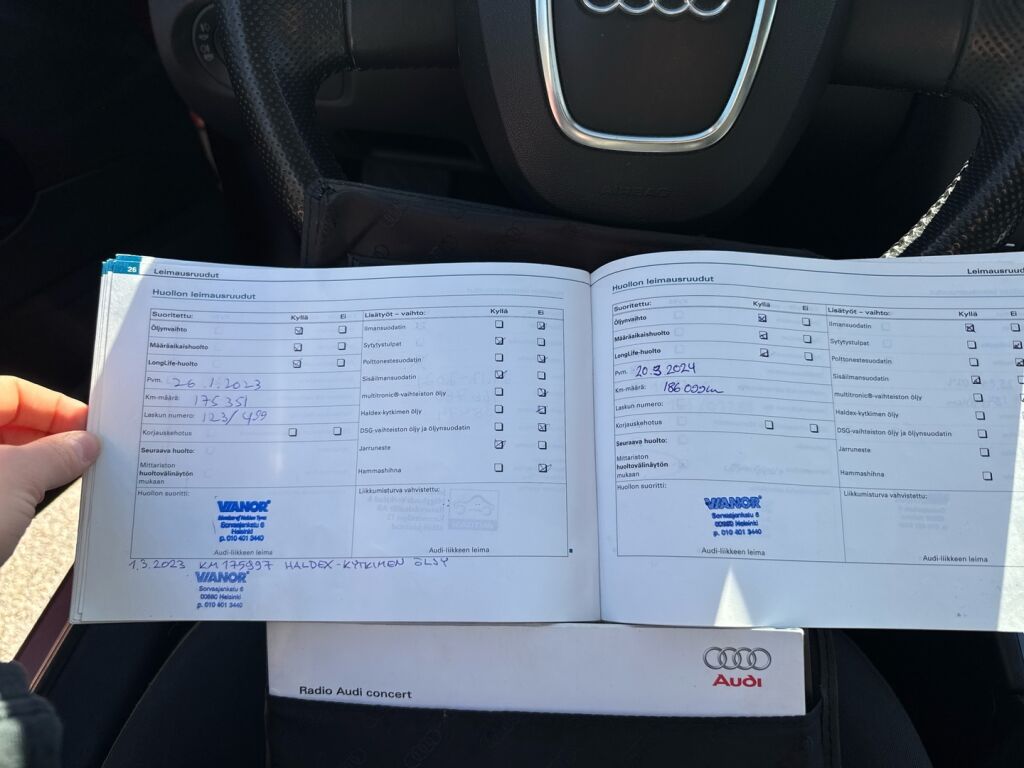 AIRBAG
26 Leimausruudut
Huollon leimausruudut
Suoritettu: Kyllä Ei
Öljynvaihto
Määräaikaishuolto
LongLife-huolto
Pvm. 26.1.2023
Km-määrä: 175 351
Laskun numero: 123/499
Korjauskehotus
Seuraava huolto:
Mittariston
huoltovälinäytön
mukaan
Huollon suoritti:
VIANOR
Member of Nokian Tyres
Sorvaajankatu 6
Helsinki
p. 010 401 3440
Lisätyöt – vaihto: Kyllä Ei
Ilmansuodatin
Sytytystulpat
Polttonestesuodatin
Sisäilmansuodatin
multitronic®-vaihteiston öljy
Haldex-kytkimen öljy
DSG-vaihteiston öljy ja öljynsuodatin
Jarruneste
Hammashihna
Liikkumisturva vahvistettu:
Audi-liikkeen leima
Audi-liikkeen leima
1.3.2023 KM 175997 HALDEX-KYTKIMEN ÖLJY
VIANOR
Sorvaajankatu 6
00880 Helsinki
p. 010 401 3440
Leimausruud
Huollon leimausruudut
Suoritettu: Kyllä Ei
Öljynvaihto
Määräaikaishuolto
LongLife-huolto
Pvm. 20.3 2024
Km-määrä: 186000km
Laskun numero:
Korjauskehotus
Seuraava huolto:
Mittariston
huoltovälinäytön
mukaan
Huollon suoritti:
VIANOR
Sorvaajankatu 6
00880 Helsinki
p. 010 401 3440
Lisätyöt – vaihto: Kyllä Ei
Ilmansuodatin
Sytytystulpat
Polttonestesuodatin
Sisäilmansuodatin
multitronic®-vaihteiston öljy
Haldex-kytkimen öljy
DSG-vaihteiston öljy ja öljynsuodatin
Jarruneste
Hammashihna
Liikkumisturva vahvistettu:
Audi-liikkeen leima
Audi-liikkeen leima
Radio Audi concert
Audi